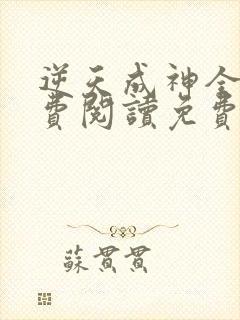 逆天成神全
費閱讀免費
蘇貫貫